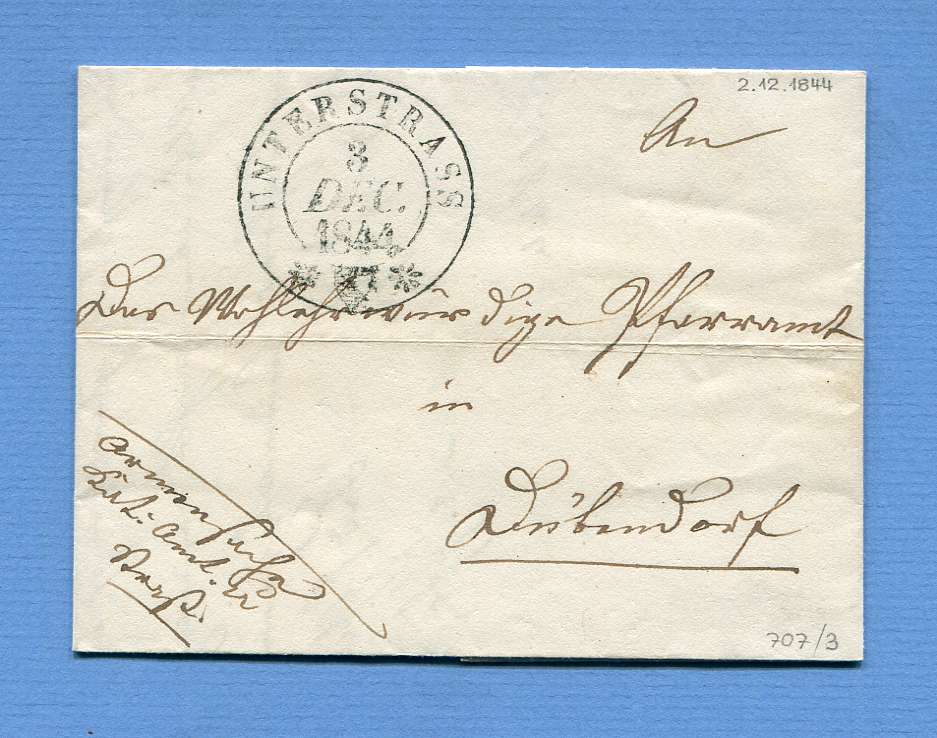 2.12.1844
An
UNTERSTRASS
3
DEC.
1844
Das Wohlehrwürdige Pfarramt
in
Dübendorf
Armensache
Amt.
707/3